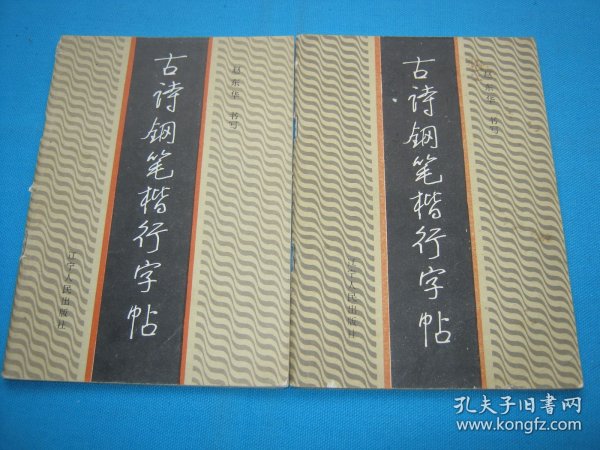 古诗钢笔楷行字帖
赵东华 书写
辽宁人民出版社
古诗钢笔楷行字帖
赵东华 书写
辽宁人民出版社
孔夫子旧书网
www.kongfz.com